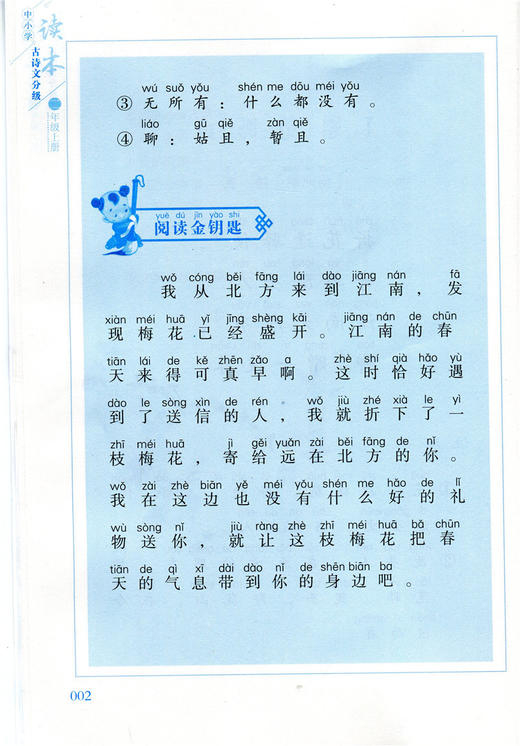 中小学
读本
古诗文分级
二年级上册
wú suǒ yǒu shén me dōu méi yǒu
③无所有：什么都没有。
liáo gū qiě zàn qiě
④聊：姑且，暂且。
yuè dú jīn yào shi
阅读金钥匙
wǒ cóng běi fāng lái dào jiāng nán fā
我从北方来到江南，发
xiàn méi huā yǐ jīng shèng kāi jiāng nán de chūn
现梅花已经盛开。江南的春
tiān lái de kě zhēn zǎo a zhè shí qià hǎo yù
天来得可真早啊。这时恰好遇
dào le sòng xìn de rén wǒ jiù zhé xià le yì
到了送信的人，我就折下了一
zhī méi huā jì gěi yuǎn zài běi fāng de nǐ
枝梅花，寄给远在北方的你。
wǒ zài zhè biān yě méi yǒu shén me hǎo de lǐ
我在这边也没有什么好的礼
wù sòng nǐ jiù ràng zhè zhī méi huā bǎ chūn
物送你，就让这枝梅花把春
tiān de qì xī dài dào nǐ de shēn biān ba
天的气息带到你的身边吧。
002